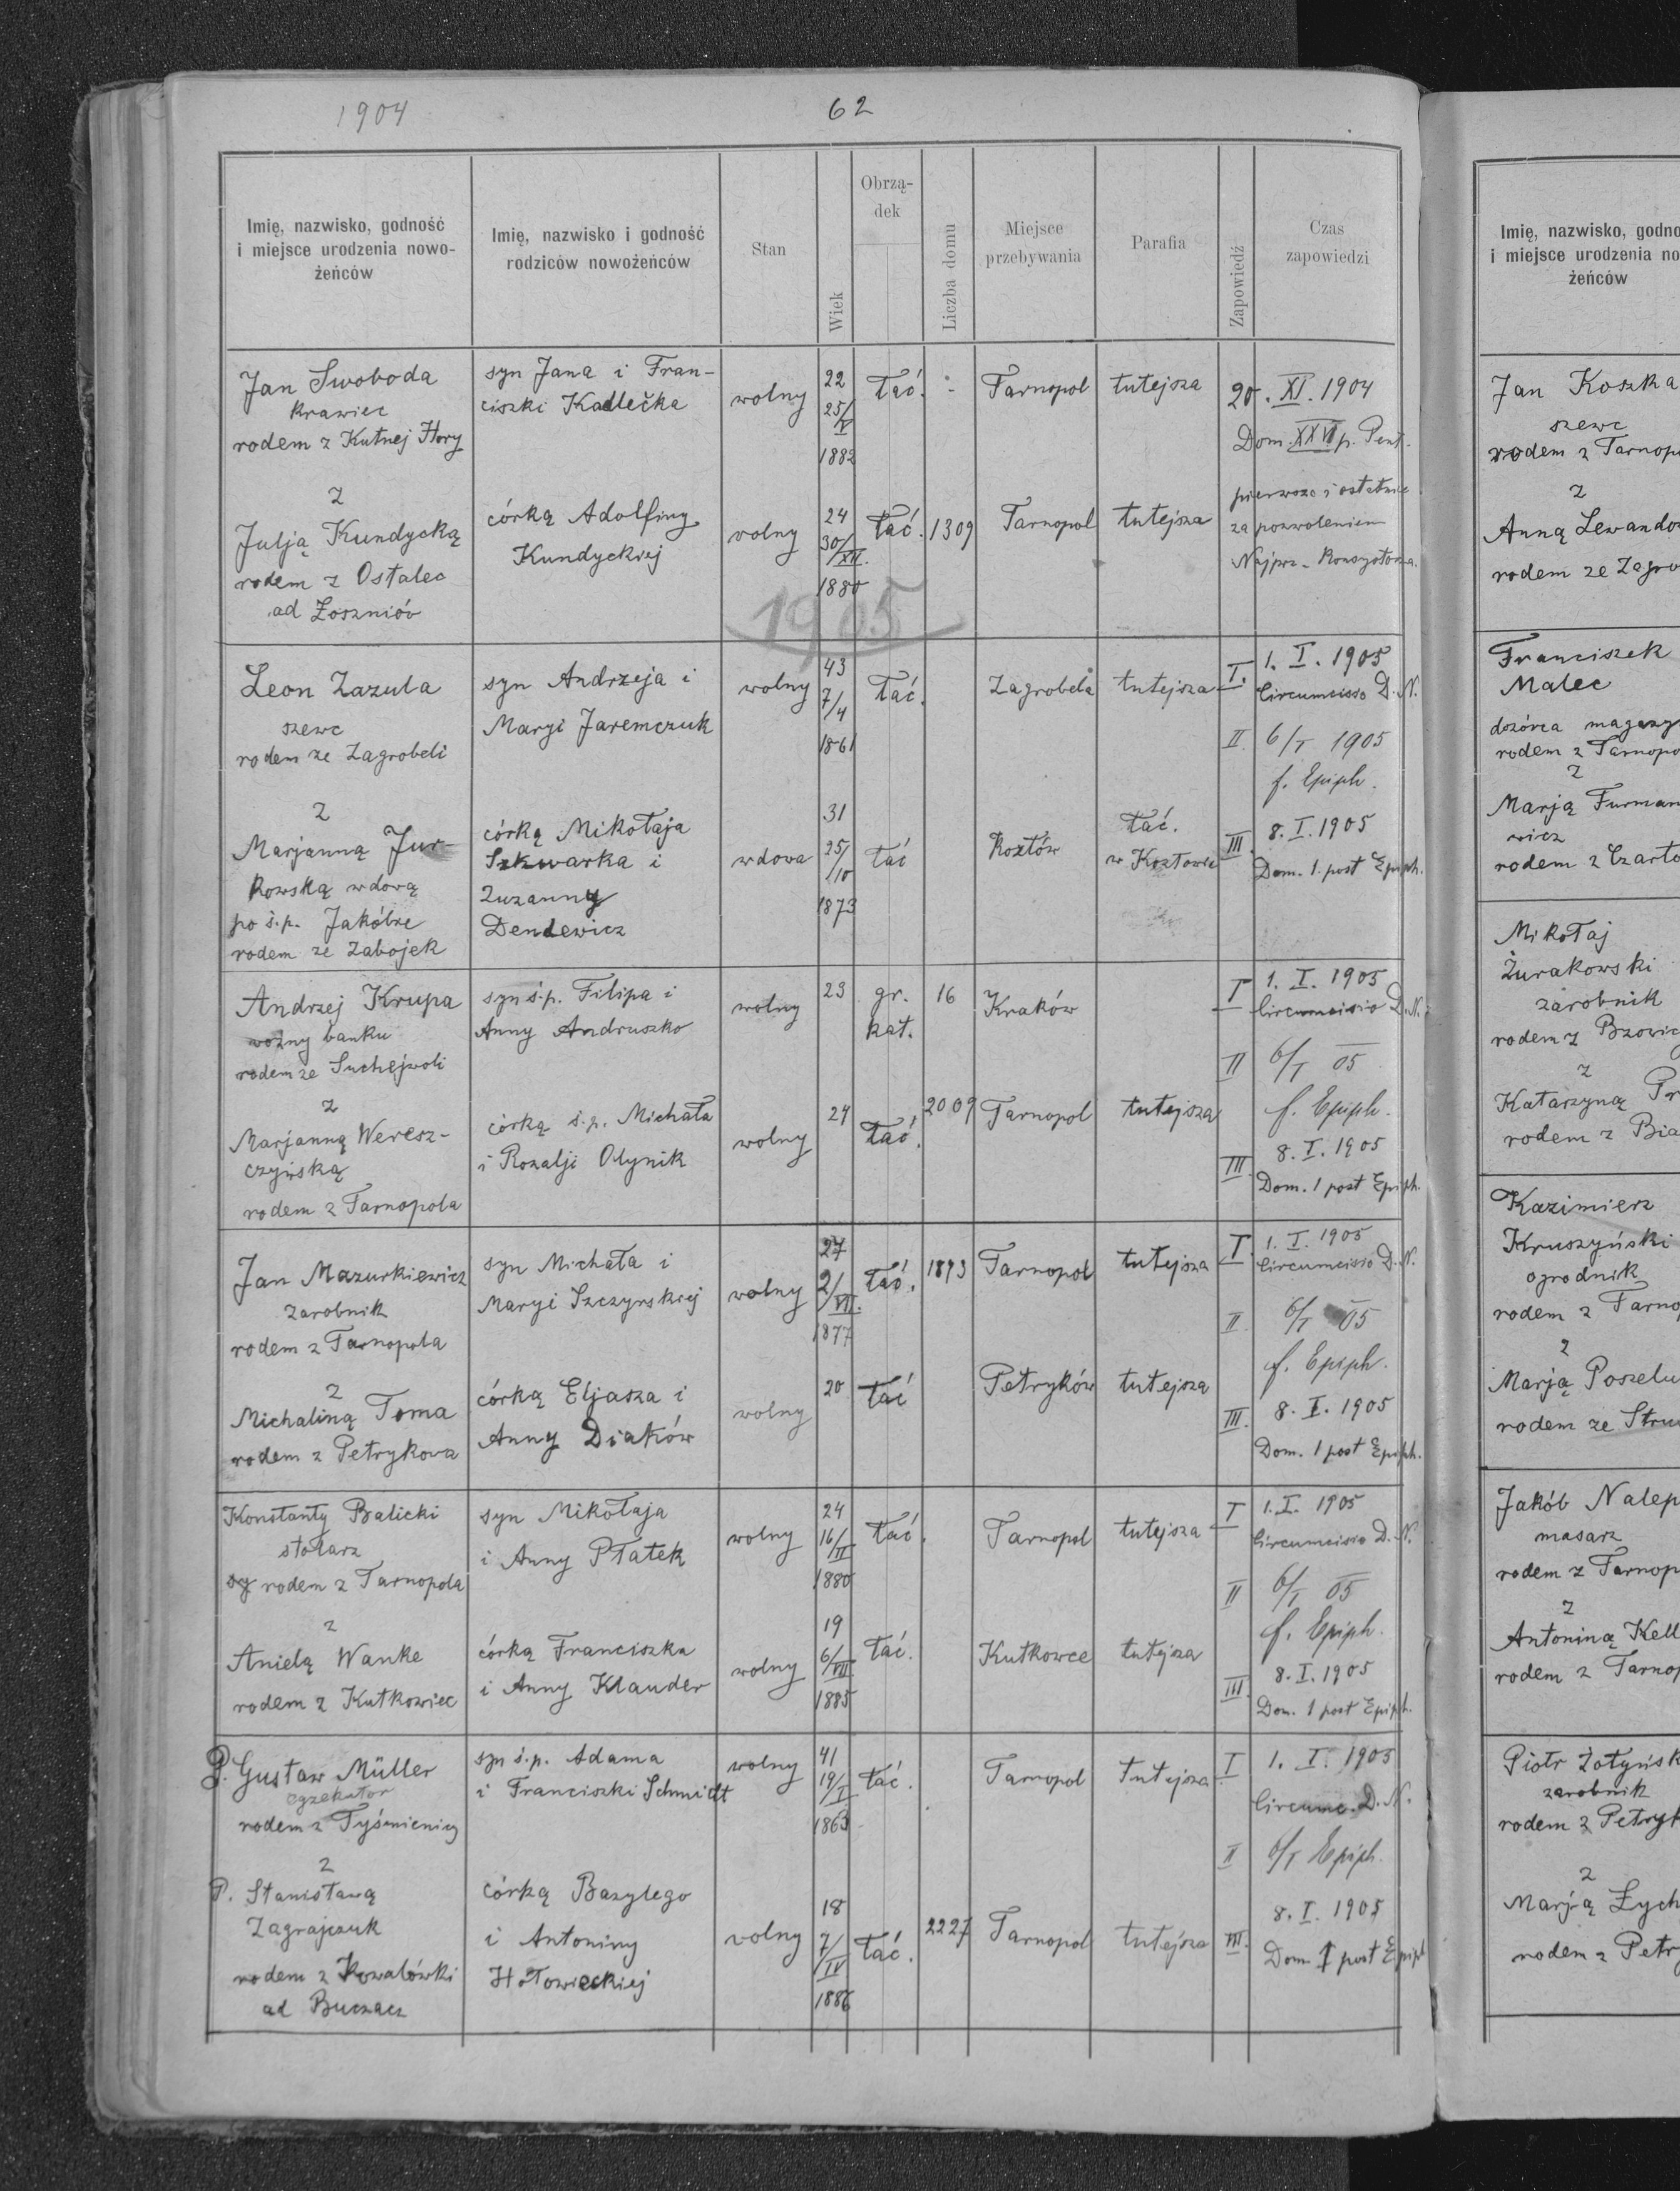 1904
62
Imię, nazwisko, godność
i miejsce urodzenia nowo-
żeńców
Imię, nazwisko i godność
rodziców nowożeńców
Stan
Wiek
Obrzą-
dek
Liczba domu
Miejsce
przebywania
Parafia
Zapowiedź
Czas
zapowiedzi
Jan Swoboda
krawiec
rodem z Kutnej Hory
syn Jana i Fran-
ciszki Kadlečka
wolny
22
25/V
1882
łać.
-
Tarnopol
tutejsza
20. XI. 1904
Dom. XXVI p. Pent.
pierwsza i ostatnia
za pozwoleniem
Najprz. Konsystorza.
z
Julją Kundycką
rodem z Ostalec
ad Łoszniów
córką Adolfiny
Kundyckiej
wolny
24
30/XII.
1880
łać.
1309
Tarnopol
tutejsza
1905
Leon Zazula
szewc
rodem ze Zagrobeli
syn Andrzeja i
Maryi Jaremczuk
wolny
43
7/4
1861
łać.
Zagrobela
tutejsza
I.
1. I. 1905
Circumcisio D. N.
II.
6/I 1905
f. Epiph.
z
Marjanną Jur-
kowską wdową
po ś.p. Jakóbie
rodem ze Zabojek
córką Mikołaja
Szkwarka i
Zuzanny
Dendewicz
wdowa
31
25/10
1873
łać
Kozłów
łać.
w Kozłowie
III.
8. I. 1905
Dom. 1. post Epiph.
Andrzej Krupa
woźny banku
rodem ze Suchejwoli
syn ś.p. Filipa i
Anny Andruszko
wolny
23
gr.
kat.
16
Kraków
I
1. I. 1905
Circumcisio D. N.
II
6/I 05
f. Epiph.
z
Marjanną Weresz-
czyńską
rodem z Tarnopola
córką ś.p. Michała
i Rozalji Olynik
wolny
24
łać.
2009
Tarnopol
tutejsza
III.
8. I. 1905
Dom. 1 post Epiph.
Jan Mazurkiewicz
zarobnik
rodem z Tarnopola
syn Michała i
Maryi Szczyrskiej
wolny
27
2/VI.
1877
łać.
1893
Tarnopol
tutejsza
I
1. I. 1905
Circumcisio D. N.
II.
6/I 05
f. Epiph.
z
Michaliną Toma
rodem z Petrykowa
córką Eljasza i
Anny Diaków
wolny
20
łać
Petryków
tutejsza
III.
8. I. 1905
Dom. 1 post Epiph.
Konstanty Balicki
stolarz
rodem z Tarnopola
syn Mikołaja
i Anny Płatek
wolny
24
16/II
1880
łać.
Tarnopol
tutejsza
I
1. I. 1905
Circumcisio D. N.
II
6/I 05
f. Epiph.
z
Anielą Wanke
rodem z Kutkowiec
córką Franciszka
i Anny Klauder
wolny
19
6/VII
1885
łać.
Kutkowce
tutejsza
III.
8. I. 1905
Dom. 1 post Epiph.
P. Gustaw Müller
egzekutor
rodem z Tyśmienicy
syn ś.p. Adama
i Franciszki Schmidt
wolny
41
19/I
1863
łać.
Tarnopol
tutejsza
I
1. I. 1905
Circumc. D. N.
II
6/I Epiph.
z
P. Stanisławą
Zagrajczuk
rodem z Kowalówki
ad Buczacz
córką Bazylego
i Antoniny
Hołowieckiej
wolny
18
7/IV
1886
łać.
2227
Tarnopol
tutejsza
III.
8. I. 1905
Dom. 1 post Epiph
Imię, nazwisko, godno
i miejsce urodzenia no
żeńców
Jan Koszka
szewc
rodem z Tarnop
z
Anną Lewando
rodem ze Zagro
Franciszek
Malec
dozórca magazy
rodem z Tarnopo
z
Marją Furman
wicz
rodem z Czarto
Mikołaj
Żurakowski
zarobnik
rodem z Bzowic
z
Katarzyną Pr
rodem z Bia
Kazimierz
Kruszyński
ogrodnik
rodem z Tarno
z
Marją Poszelu
rodem ze Stru
Jakób Nalep
masarz
rodem z Tarnop
z
Antoniną Kell
rodem z Tarnop
Piotr Żołyńsk
zarobnik
rodem z Petryk
z
Marją Łych
rodem z Petr